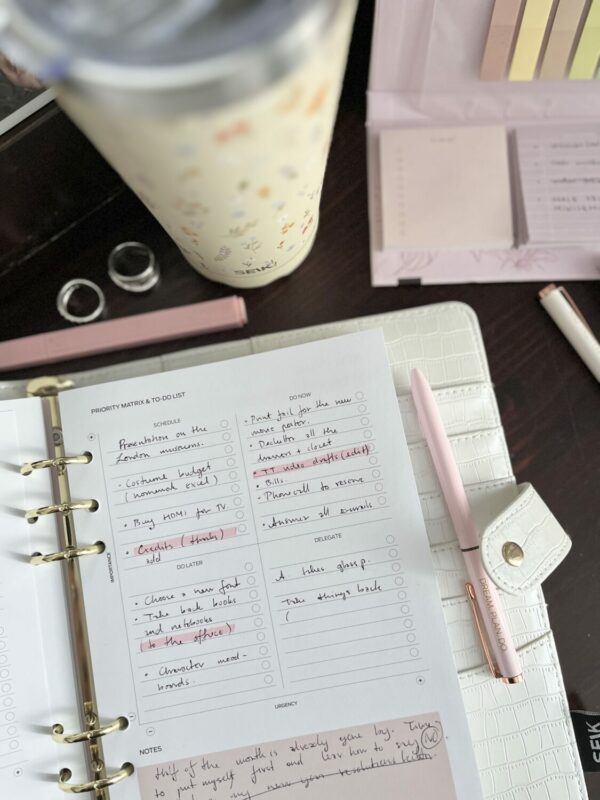 SEIK
PRIORITY MATRIX & TO-DO LIST
SCHEDULE
Presentation on the
London museums.
• Costume budget
(nomenal excel)
• Buy HDMI for TV
• Credits (thanks)
add
DO NOW
• Print foil for the new
movie poster.
• Declutter all the
drawers + closet
• TT video drafts (edit)
• Bills
• Phone call to reserve
• Answer all e-mails
DO LATER
• Choose a new font
• Take back books
and notebooks
(to the office)
• Character mood-
boards.
DELEGATE
A takes
Take things back
(
IMPORTANCE
URGENCY
NOTES
Half of the month is already gone by. Time
to put myself first and learn how to say NO
my new year resolutions
DREAM PLAN DO
SEIK